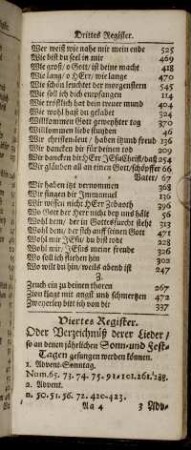 Drittes Register.
Wer weiß wie nahe mir mein ende 525
Wie bist du seel in mir 469
Wie groß / o Gott / ist deine macht 418
Wie lang / o HErr / wie lange 470
Wie schön leuchtet der morgenstern 545
Wie soll ich dich empfangen 114
Wie trefflich hat dein treuer mund 404
Wie wohl hast du gelabet 324
Willkommen Gott geweyhter tag 307
Willkommen liebe stunden 46
Wir christen-leute / haben jtzund freud 136
Wir dancken dir für deinen tod
Wir dancken dir HErr JEsu Christ / daß 254
Wir gläuben all an einen Gott / schöpffer 66
Vater / 67
Wir haben itzt vernommen 368
Wir singen dir Immanuel 136
Wir wissen nicht HErr Zebaoth 396
Wo Gott der Herr nicht bey uns hält 56
Wohl dem / der in Gottesfurcht steht 343
Wohl dem / der sich auff seinen Gott 471
Wohl mir JEsus du bist rede 228
Wohl mir JEsus meine freude 336
Wo soll ich fliehen hin 332
Wo wilt du hin / weils abend ist 247
Z.
Zeuch ein zu deinen thoren 267
Zion klagt mit angst und schmertzen 472
Zweyerley bitt ich von dir 337
Viertes Register.
Oder Verzeichnüß derer Lieder /
so an denen jährlichen Sonn- und Fest-
Tagen gesungen werden können.
1. Advent-Sonntag.
Num. 65. 73. 74. 75. 91-101. 261. 288.
2. Advent.
n. 50. 51. 56. 72. 420-423.
Aa 4 3 Adv-